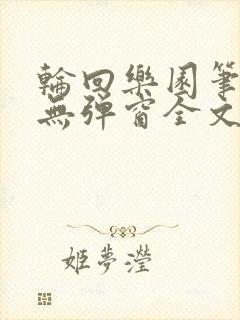 輪回樂園筆
無彈窗全文
姬夢瀅